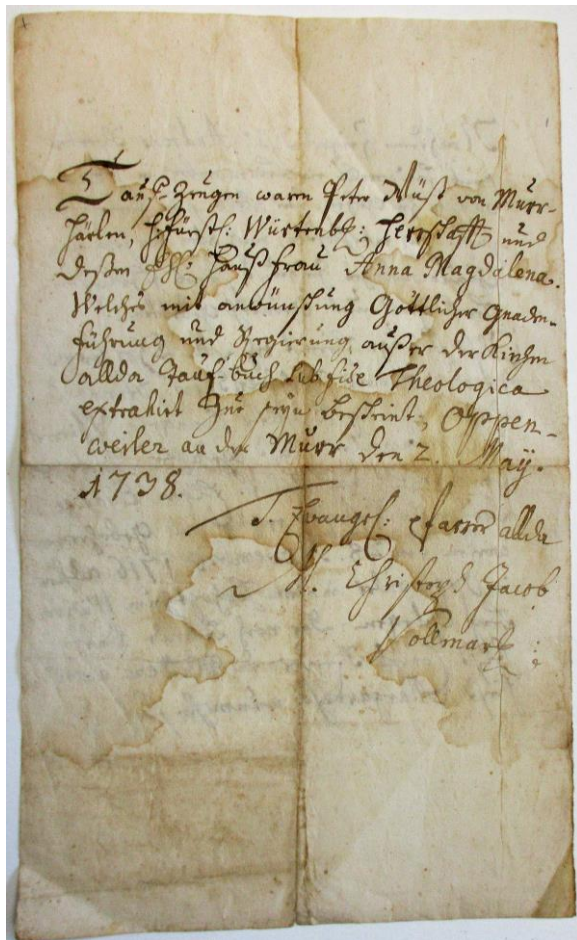 Tauf-Zeugen waren Peter Wüst von Murr-
härlen, hfürstl: Würtenb: Herrschafft und
deßen Haußfrau Anna Magdalena.
Welches mit anwünschung Göttlicher Gnaden-
führung und Regierung, außer der Kirchen
allda Tauf-buch sub fide Theologica
extrahirt zur seyn bescheint, Oppen-
weiler an der Murr den 2. May.
1738.
T. Evangel: Pfarrer allda
M. Christoph Jacob
Vollmar